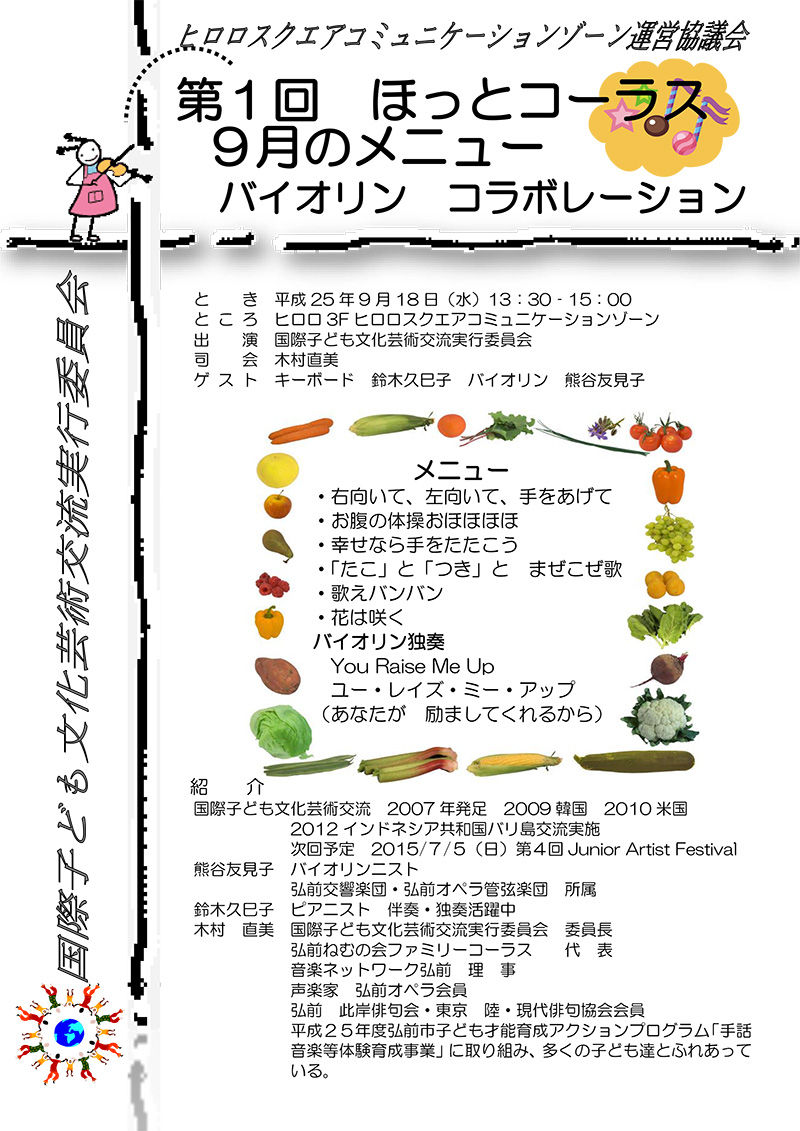 ヒロロスクエアコミュニケーションゾーン運営協議会
第１回　ほっとコーラス
９月のメニュー
バイオリン　コラボレーション
国際子ども文化芸術交流実行委員会
と　き　平成25年9月18日（水）13：30‐15：00
ところ　ヒロロ3Fヒロロスクエアコミュニケーションゾーン
出　演　国際子ども文化芸術交流実行委員会
司　会　木村直美
ゲスト　キーボード　鈴木久巳子　バイオリン　熊谷友見子
メニュー
・右向いて、左向いて、手をあげて
・お腹の体操おほほほほ
・幸せなら手をたたこう
・「たこ」と「つき」と　まぜこぜ歌
・歌えバンバン
・花は咲く
バイオリン独奏
You Raise Me Up
ユー・レイズ・ミー・アップ
（あなたが　励ましてくれるから）
紹　介
国際子ども文化芸術交流　2007年発足　2009韓国　2010米国
2012インドネシア共和国バリ島交流実施
次回予定　2015/7/5（日）第４回Junior Artist Festival
熊谷友見子　バイオリンニスト
弘前交響楽団・弘前オペラ管弦楽団　所属
鈴木久巳子　ピアニスト　伴奏・独奏活躍中
木村　直美　国際子ども文化芸術交流実行委員会　委員長
弘前ねむの会ファミリーコーラス　代　表
音楽ネットワーク弘前　理　事
声楽家　弘前オペラ会員
弘前　此岸俳句会・東京　陸・現代俳句協会会員
平成２５年度弘前市子ども才能育成アクションプログラム「手話
音楽等体験育成事業」に取り組み、多くの子ども達とふれあって
いる。